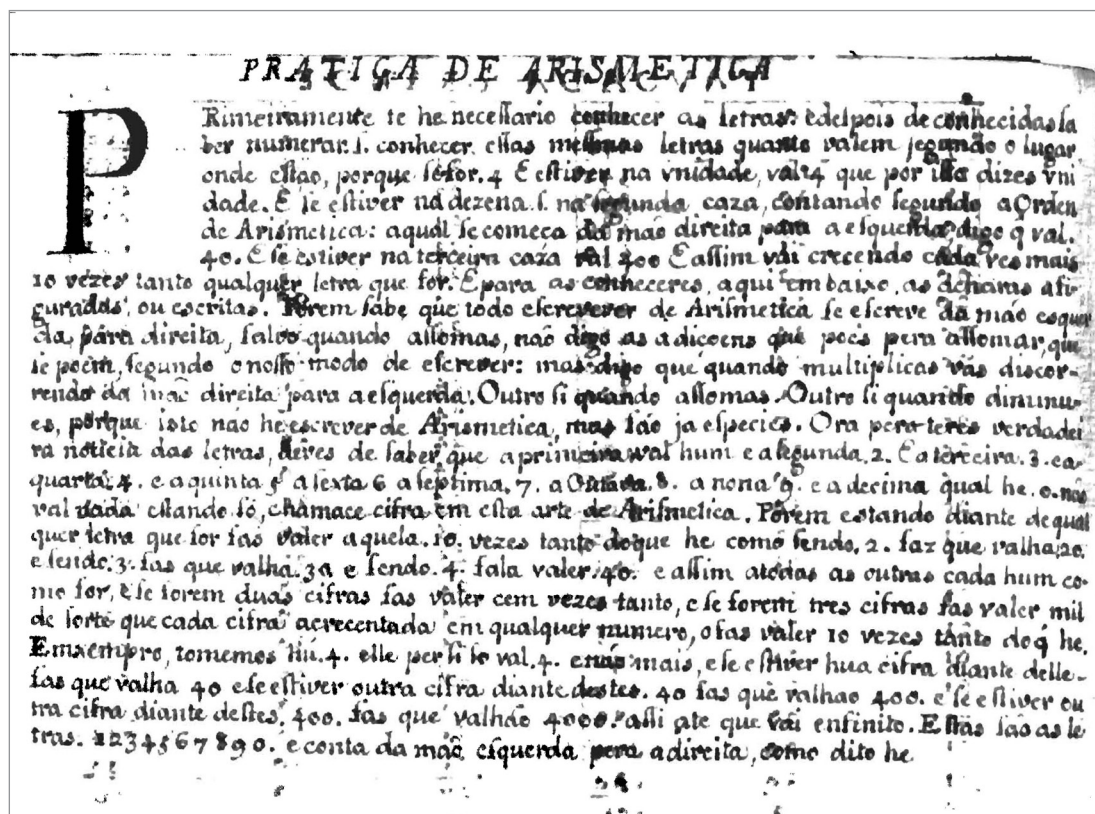 PRATICA DE ARISMETICA
PRimeiramente te he neceſſario conhecer as letras: e deſpois de conhecidas ſa
ber numerar. ſ. conhecer eſſas meſmas letras quanto valem ſegundo o lugar
onde eſtão, porque ſe for. 4 E eſtiver na vnidade, val 4 que por iſſo dizes vni
dade. E ſe eſtiver na dezena. ſ. na ſegunda caza, contando ſegundo a Orden
de Arismetica: a qual ſe começa da mão direita para a eſquerda, digo q̃ val.
40. E ſe estiver na terceira caza val 400 E aſſim vai crecendo cada ves mais
10 vezes tanto qualquer letra que for. E para as conheceres, aqui em baixo, as acharas afi
guradas, ou escritas. Porem ſabe que todo eſcrevever de Ariſmetica ſe eſcreve da mão esquer
da, para direita, ſalvo quando aſſomas, não digo as adiçoens que poes pera aſſomar, que
ſe poem, ſegundo o noſſo modo de eſcrever: mas digo que quando multiplicas vas discor-
rendo da mão direita para a eſquerda. Outro ſi quando aſſomas. Outro ſi quando diminu-
es, porque isto não he escrever de Arismetica, mas ſão ja eſpecies. Ora pera teres verdadei
ra noticia das letras, deves de ſaber que a primeira val hum e a ſegunda. 2. E a terceira. 3. e a
quarta. 4. e a quinta 5 a ſexta 6 a ſeptima. 7. a Outava. 8. a nona 9. e a decima qual he. 0. não
val nada eſtando ſó, chamace cifra em eſta arte de Ariſmetica. Porem estando diante de qual
quer letra que for fas valer aquela. 10. vezes tanto do que he como ſendo. 2. faz que valha. 20.
e ſendo. 3. fas que valha. 30 e ſendo. 4. fala valer. 40. e aſſim a todas as outras cada hum co-
mo for, e ſe forem duas cifras fas valer cem vezes tanto, e ſe forem tres cifras fas valer mil
de ſorte que cada cifra acrecentada em qualquer numero, o fas valer 10 vezes tanto do q̃ he.
Emxempro, tomemos hũ. 4. elle per ſi ſo val. 4. e não mais, e ſe eſtiver hua cifra diante delle.
fas que valha 40 e ſe eſtiver outra cifra diante destes. 40 fas que valhao 400. e ſe eſtiver ou
tra cifra diante deſtes. 400. fas que valhão 4000. aſſi ate que vai enfinito. Eſtas ſão as le
tras. 1234567890. e conta da mão eſquerda pera a direita, como dito he